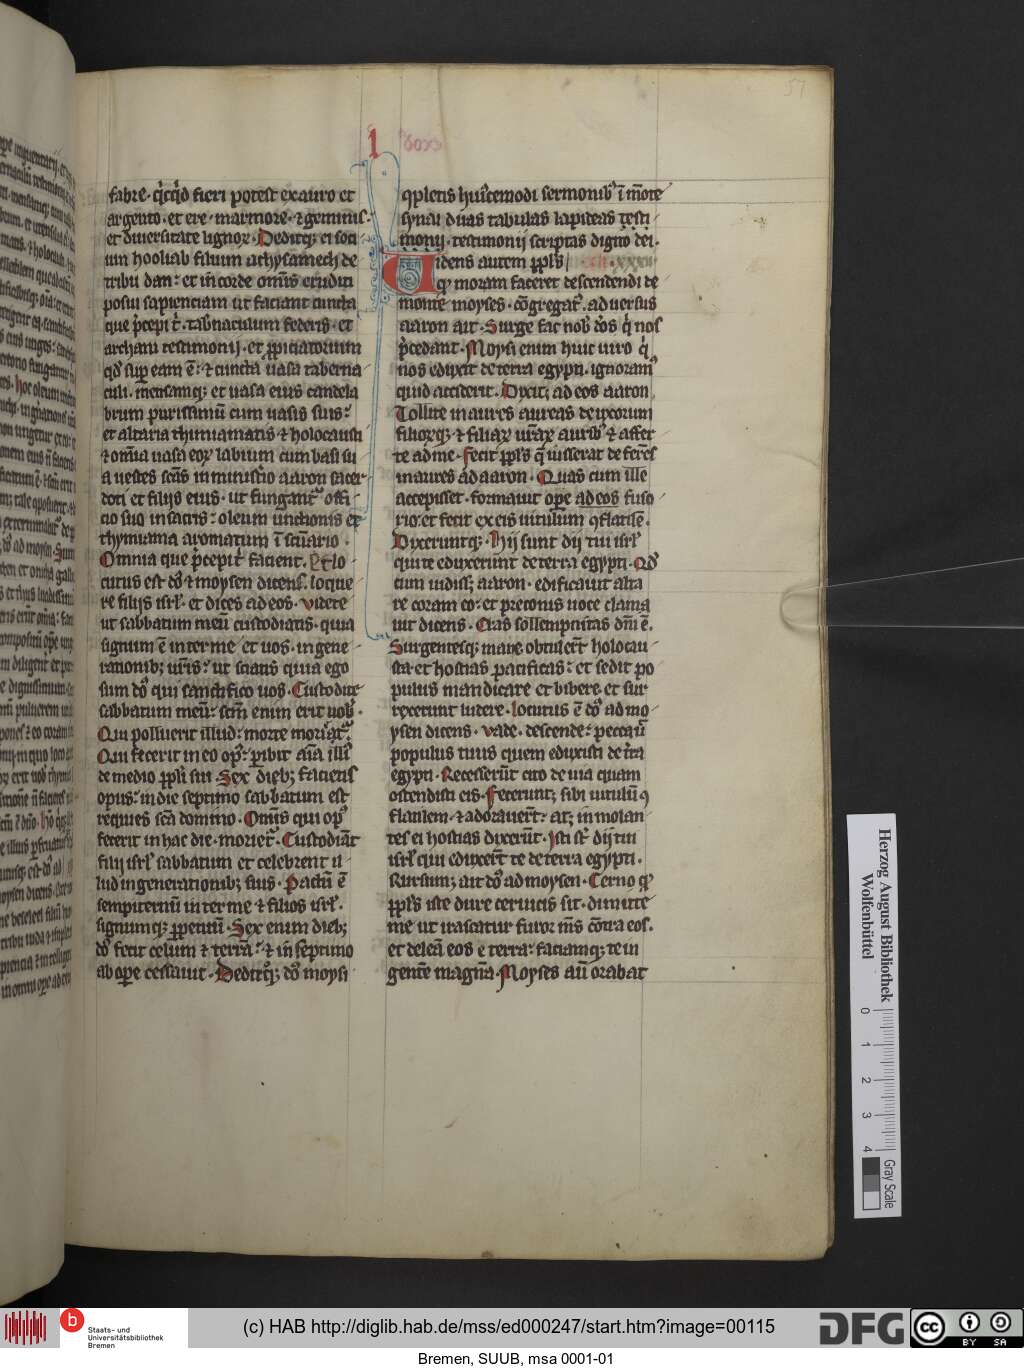 fabre · qicqid fieri potest ex auro et
argento · et ere · marmore · ⁊ gemmis ·
et diuersitate lignoꝝ · Deditqꝫ ei soci
um hooliab filium achysamech de
tribu dan : et in corde omnis eruditi
posui sapienciam ut faciant cuncta
que p̄cepi t̄ · tab̄naculum federis · et
archam testimonij · et ꝓpiciatorium
qd̄ suꝑ eam ē : ⁊ cuncta uasa taberna
culi · mensamqꝫ et uasa eius candela
brum purissimū cum uasis suis :
et altaria thimiamatis ⁊ holocausti
⁊ om̄ia uasa eoꝝ labium cum basi su
a uestes sc̄as in ministrio aaron sacer
doti et filijs eius · ut fungant᷑ offi
cio suo in sacris : oleum unctionis et
thymiama aromatum ī sc̄uario ·
Omnia que p̄cepit᷑ facient · Et lo
cutus est dn̄s ad moysen dicens · loque
re filijs isrl̄ · et dices ad eos · videte
ut sabbatum meū custodiatis · quia
signum ē inter me et uos · in gene
rationibꝫ ur̄is : ut sciatis quia ego
sum dn̄s qui sanctifico uos · Custodite
sabbatum meū : sc̄m enim erit uob̄ ·
Qui polluerit illud : morte moriat᷑ ·
Qui fecerit in eo op᷒ : ꝑibit aīa illi᷒
de medio ppl̄i sui · Sex diebꝫ faciens
opus : in die septimo sabbatum est
requies sc̄a domino · Omis qui op᷒
fecerit in hac die · moriet᷑ · Custodiāt
filij isrl̄ sabbatum et celebrent il
lud in generationibꝫ suis · Pactū ē
sempiternū inter me ⁊ filios isrl̄ ·
signumqꝫ ꝑpetuū · Sex enim diebꝫ
dn̄s fecit celum ⁊ terrā : ⁊ in septimo
ab oꝑe cessauit · Deditqꝫ dn̄s moysi
ꝯpletis huiꝰcemodi sermonibꝰ ī mōte
synai duas tabulas lapideas testi
monij · testimonij scriptas digito dei ·
Uidens autem ppl̄s · xxxii
qꝫ moram faceret descendendi de
monte moyses · cōgregatꝰ aduersus
aaron ait · Surge fac nob̄ deos qi nos
p̄cedant · Moysi enim huic uiro qi
nos eduxit de terra egypti · ignoramꝰ
quid acciderit · Dixitqꝫ ad eos aaron
Tollite inaures aureas de uxorum
filioꝝqꝫ ⁊ filiaꝝ ur̄aꝝ auribꝰ ⁊ affer
te ad me · Fecit ppl̄s q̄ iusserat deferēs
inaures ad aaron · Quas cum ille
accepisset · formauit oꝑe ad eos fuso
rio : et fecit ex eis uitulum ꝯflatilē ·
Dixeruntqꝫ · Hij sunt dij tui isrl̄
qui te eduxerunt de terra egypti · Qd̄
cum uidissꝫ aaron · edificauit alta
re coram eo : et preconis uoce clama
uit dicens · Cras sollempnitas dn̄i ē ·
Surgentesqꝫ mane obtulert̄ holocau
sta et hostias pacificas : et sedit po
pulus manducare et bibere et sur
rexerunt ludere · locutus ē dn̄s ad mo
ysen dicens · vade · descende : peccauit
populus tuus quem eduxisti de t̄ra
egypti · Recesserūt cito de uia quam
ostendisti eis · Feceruntqꝫ sibi uitulū ꝯ
flatilem · ⁊ adorauert̄ : atqꝫ īmolan
tes ei hostias dixerūt · Isti st̄ dij tui
isrl̄ qui eduxert̄ te de terra egypti ·
Rursumqꝫ ait dn̄s ad moysen · Cerno qꝫ
ppl̄s iste dure ceruicis sit · dimitte
me ut irascatur furor m̄s cōtra eos ·
et deleā eos e terra : faciamqꝫ te in
gentē magnā · Moyses aū orabat
Herzog August Bibliothek
Wolfenbüttel
0 1 2 3 4
Gray Scale
Staats- und
Universitätsbibliothek
Bremen
(c) HAB http://diglib.hab.de/mss/ed000247/start.htm?image=00115
DFG
cc BY SA
Bremen, SUUB, msa 0001-01